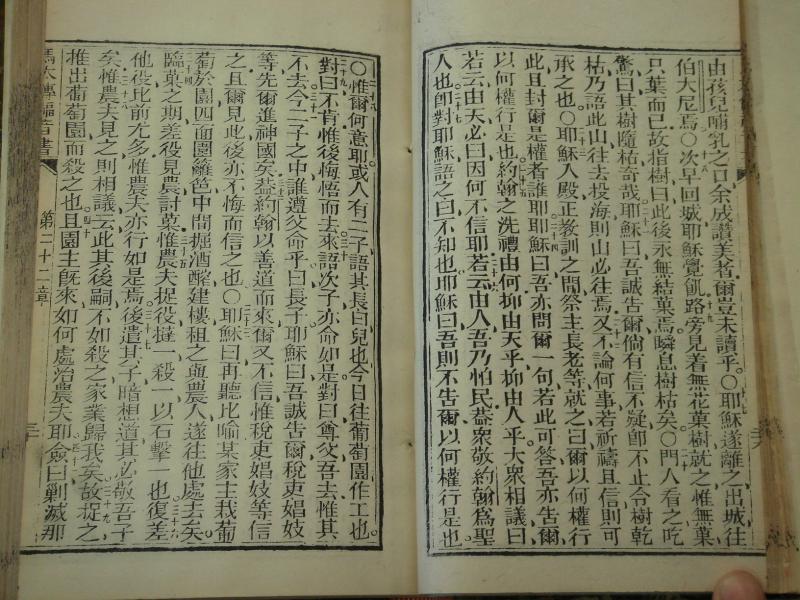 由孩兒哺乳之口余成讚美者爾豈未讀乎〇耶穌遂離之出城往
伯大尼焉〇次早回城耶穌覺飢路旁見着無花菓樹就之惟無菓
只葉而已故指樹曰此後永無結菓焉瞬息樹枯矣〇門人看之吃
驚曰其樹隨枯奇哉耶穌曰吾誠告爾倘有信不疑卽不止令樹乾
枯乃語此山往去投海則山必往焉又不論何事若祈禱且信則可
承之也〇耶穌入殿正教訓之間祭主長老等就之曰爾以何權行
此且封爾是權者誰耶耶穌曰吾亦問爾一句若此可答吾亦告爾
以何權行是也約翰之洗禮由何抑由天乎抑由人乎大衆相議曰
若云由天必曰因何不信耶若云由人吾乃怕民葢衆敬約翰爲聖
人也卽對耶穌語之曰不知也耶穌曰吾則不告爾以何權行是也
〇惟爾何意耶或人有二子語其長曰兒也今日往葡萄園作工也
對曰不肯惟後悔悟而去來語次子亦命如是對曰尊父吾去惟其
不去今二子之中誰遵父命乎曰長子耶穌曰吾誠告爾稅吏娼妓
等先爾進神國矣葢約翰以善道而來爾又不信惟稅吏娼妓等信
之且爾見此後亦不悔而信之也〇耶穌曰再聽比喻某家主栽葡
萄於園四面園籬笆中間掘酒醡建樓租之與農人遂往他處去矣
臨菓之期差役見農討菓惟農夫捉役撻一殺一以石擊一也復差
他役比前尤多惟農夫亦行如是焉後遣其子暗想道其必敬吾子
矣惟農夫見之則相議云此其後嗣不如殺之家業歸我矣故捉之
推出葡萄園而殺之也且園主旣來如何處治農夫耶僉曰剿滅那
馬太傳福音書
第二十二章